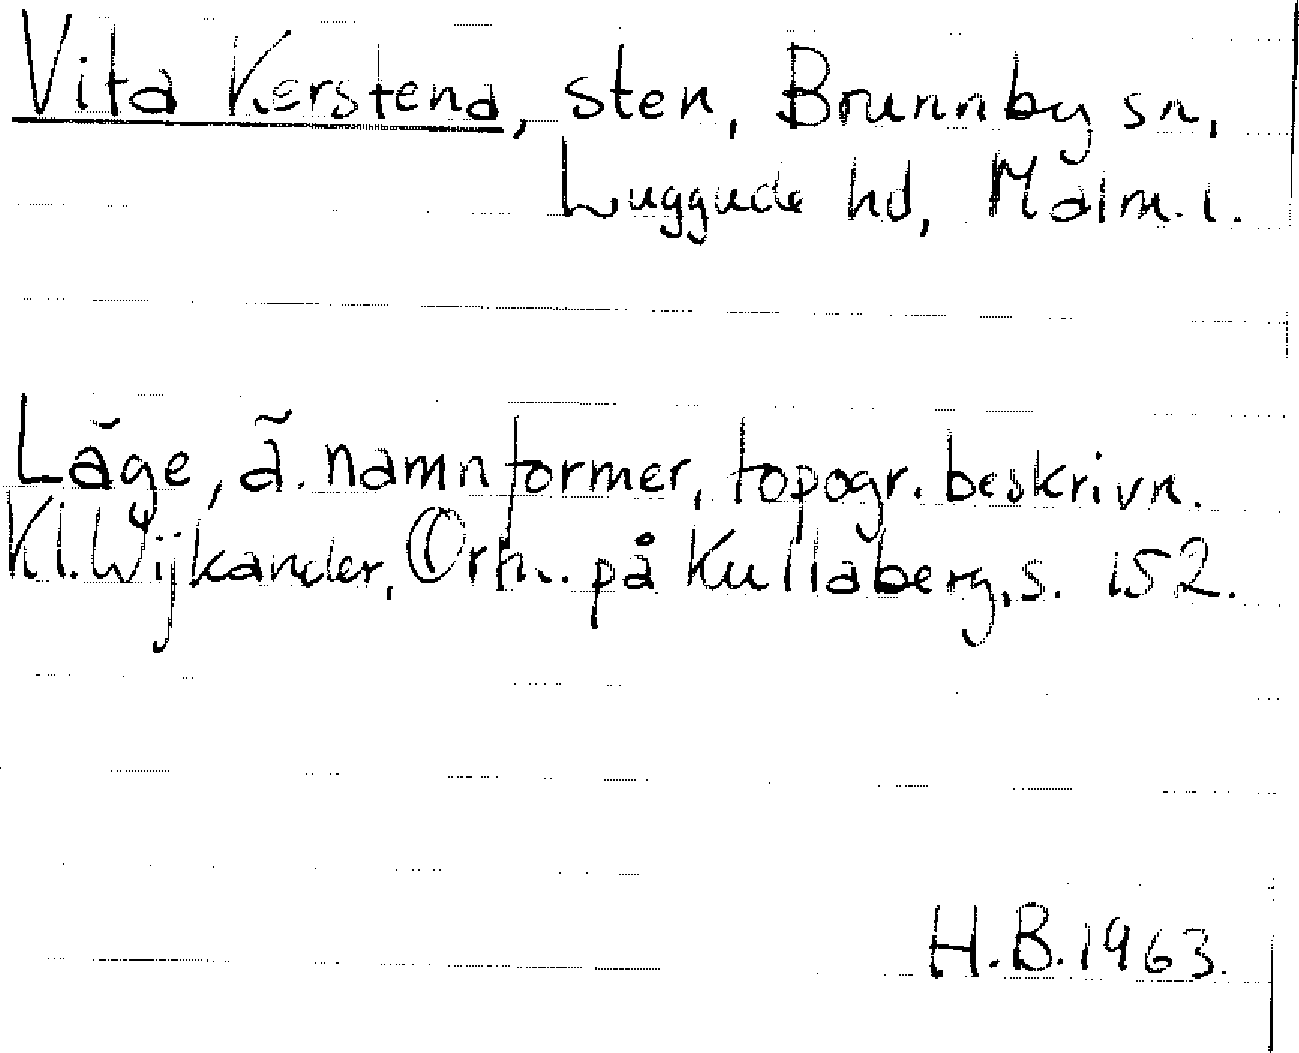 Vita Kerstena, sten, Brunnby sn,
Luggude hd, Malm. l.
Läge, ä. namnformer, topogr. beskrivn.
Kl. Wijkander, Ortn. på Kullaberg, s. 152.
H.B. 1963.